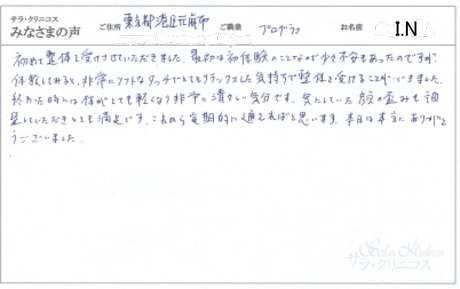 サラ・クリニコス
みなさまの声
ご住所 東京都港区元麻布 ご職業 プログラマ お名前 I.N
初めて整体を受けさせていただきました。最初は初体験のことなので少々不安もあったのですが、
体験してみると、非常にソフトなタッチでとてもリラックスした気持ちで整体を受けることができました。
終わった時には体がとても軽くなり非常に清々しい気分です。気にしていた顔の歪みも調
整していただきとても満足です。これから定期的に通えればと思います。本日は本当にありがと
うございました。
Sala Klinikos
サラ・クリニコス